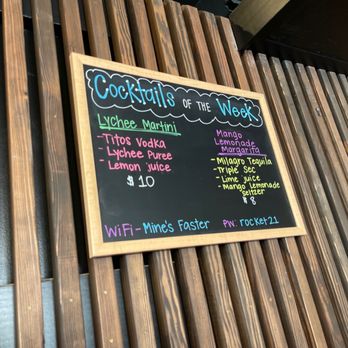 Cocktails OF THE Week
Lychee Martini
- Titos Vodka
- Lychee Puree
- Lemon juice
$10
Mango
Lemonade
Margarita
- Milagro Tequila
- Triple Sec
- Lime juice
- Mango Lemonade
Seltzer
$8
WiFi - Mine's Faster PW: rocket21